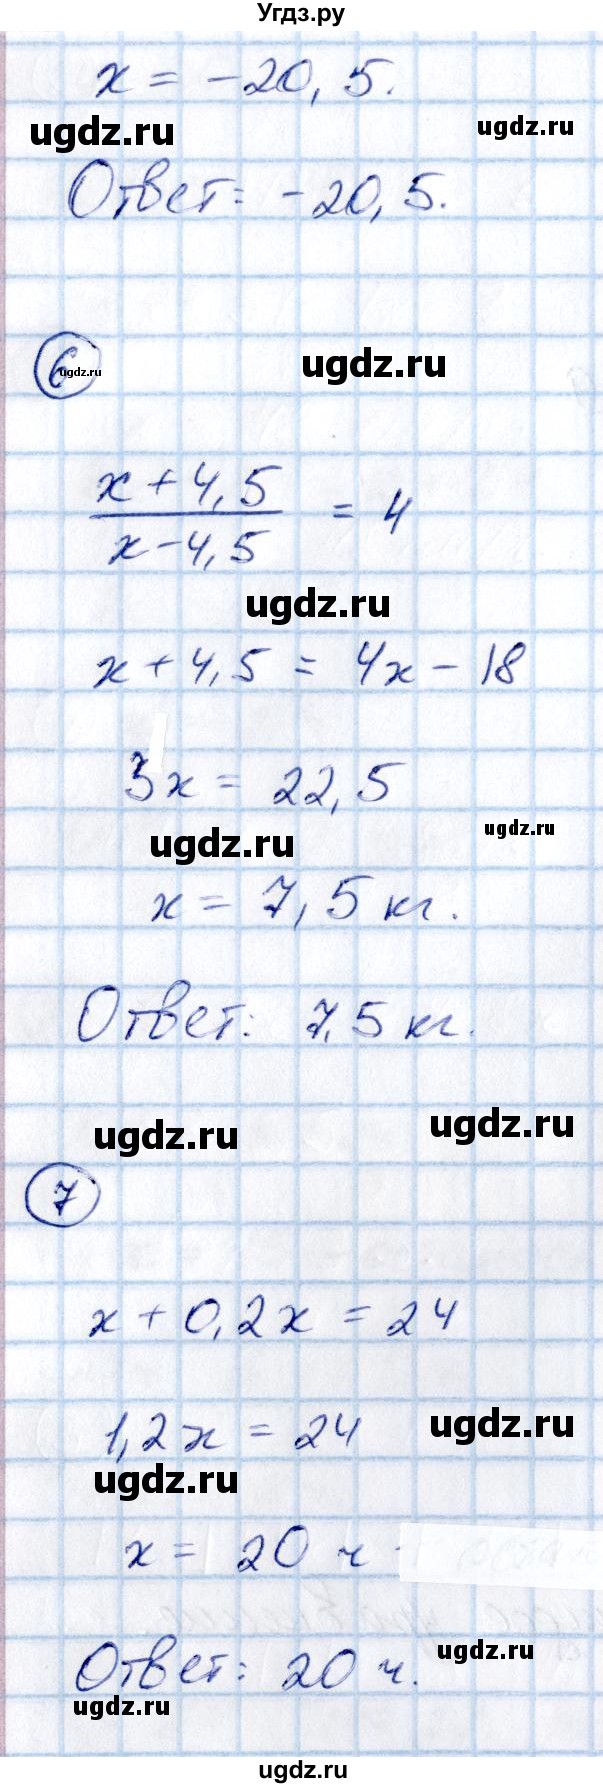 Угдз.ру
x = -20,5.
ugdz.ru
ugdz.ru
Ответ: -20,5.
6
ugdz.ru
ugdz.ru
x + 4,5
x - 4,5
= 4
ugdz.ru
x + 4,5 = 4x - 18
3x = 22,5
ugdz.ru
ugdz.ru
x = 7,5 кг.
Ответ: 7,5 кг.
ugdz.ru
ugdz.ru
7
x + 0,2x = 24
1,2x = 24
ugdz.ru
ugdz.ru
x = 20 ч
Ответ: 20 ч.
ugdz.ru
ugdz.ru
ugdz.ru